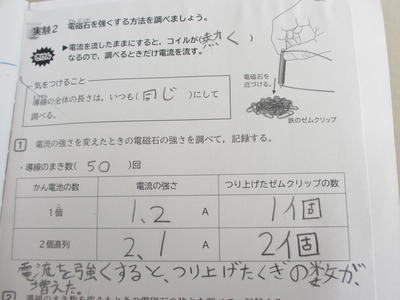 実験2 電磁石を強くする方法を調べましょう。
きけん
▶電流を流したままにすると、コイルが(熱く
なるので、調べるときだけ電流を流す。
気をつけること
導線の全体の長さは、いつも(同じ)にして
調べる。
電磁石を
近づける。
鉄のゼムクリップ
1 電流の強さを変えたときの電磁石の強さを調べて、記録する。
・導線のまき数(50)回
かん電池の数 電流の強さ つり上げたゼムクリップの数
1個 1,2 A 1個
2個直列 2,1 A 2個
電流を強くすると、つり上げたくぎの数が、
増えた。
2